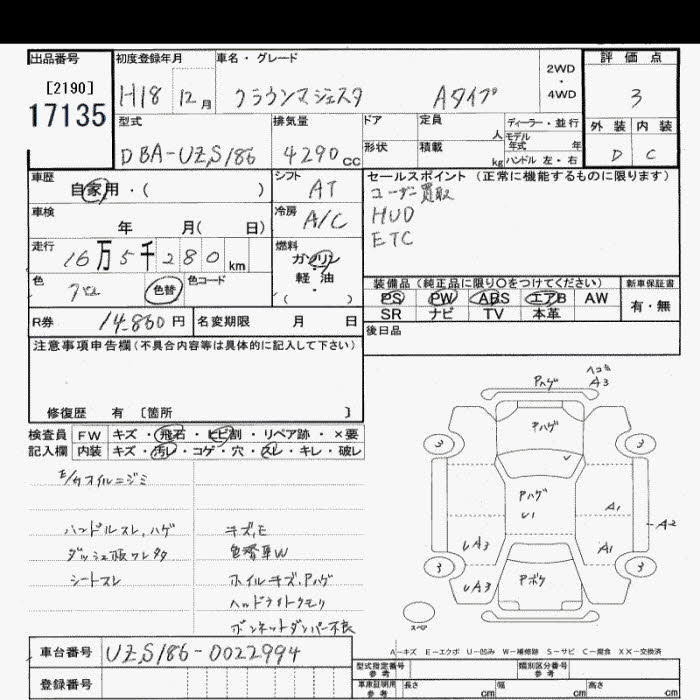 出品番号
[2190]
17135
初度登録年月
H18 12月
車名・グレード
クラウンマジェスタ Aタイプ
2WD
・
4WD
評価点
3
外装 内装
D C
型式
DBA-UZS186
排気量
4290cc
ドア
形状
定員 人
積載 kg
ディーラー・並行
モデル
年式 年
ハンドル 左・右
車歴
自家用・( )
シフト
AT
車検
年 月( 日)
冷房
A/C
走行
16万5千280km
燃料
ガソリン
軽・油
( )
色
色替
色コード
R券 14,860円
名変期限 月 日
セールスポイント(正常に機能するものに限ります)
ユーザー買取
HUD
ETC
装備品(純正品に限り○をつけてください)
PS PW ABS エアB AW
SR ナビ TV 本革
新車保証書
有・無
後日品
注意事項申告欄(不具合内容等は具体的に記入して下さい)
修復歴 有 〔箇所 〕
検査員
記入欄
FW キズ・飛石・ヒビ割・リペア跡・×要
内装 キズ・汚レ・コゲ・穴・スレ・キレ・破レ
E/Gオイルニジミ
ハンドルスレ,ハゲ
ダッシュ板ワレタタ
シートスレ
キズ,E
色替車W
ホイルキズ,Pハゲ
ヘッドライトクモリ
ボンネットダンパー不良
Pハゲ
ヘコミ
A3
Pハゲ
3
3
Pハゲ
U1
A1
A2
UA3
A1
3
3
UA3
Pボケ
スペア
A-キズ E-エクボ U-凹み W-補修跡 S-サビ C-腐食 XX-交換済
車台番号 UZS186-0022994
登録番号
型式指定番号
参考
類別区分番号
参考
車庫証明用
参考
長さ cm
幅 cm
高さ cm